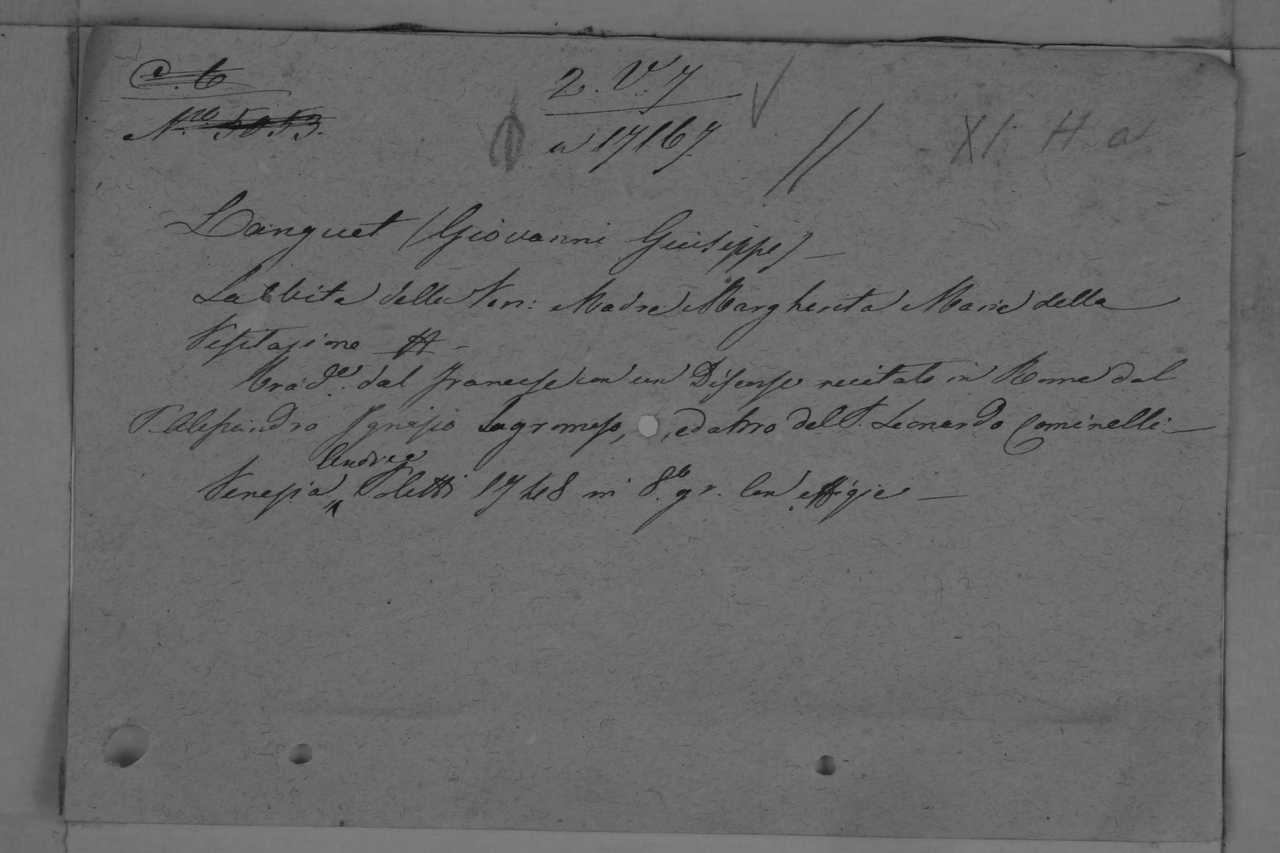 C. 6
N.ro 5053.
2. V. 7
a 17167.
XI. H. a
Languet (Giovanni Giuseppe) —
La Vita della Ven: Madre Margherita Maria della
Visitazione —
Trad.e dal francese con un Discorso recitato in Roma dal
P. Alessandro Ignazio Lagromeso, ed altro del P. Leonardo Cominelli —
Andrea
Venezia Poletti 1748 in 8.o gr. Con effigie —